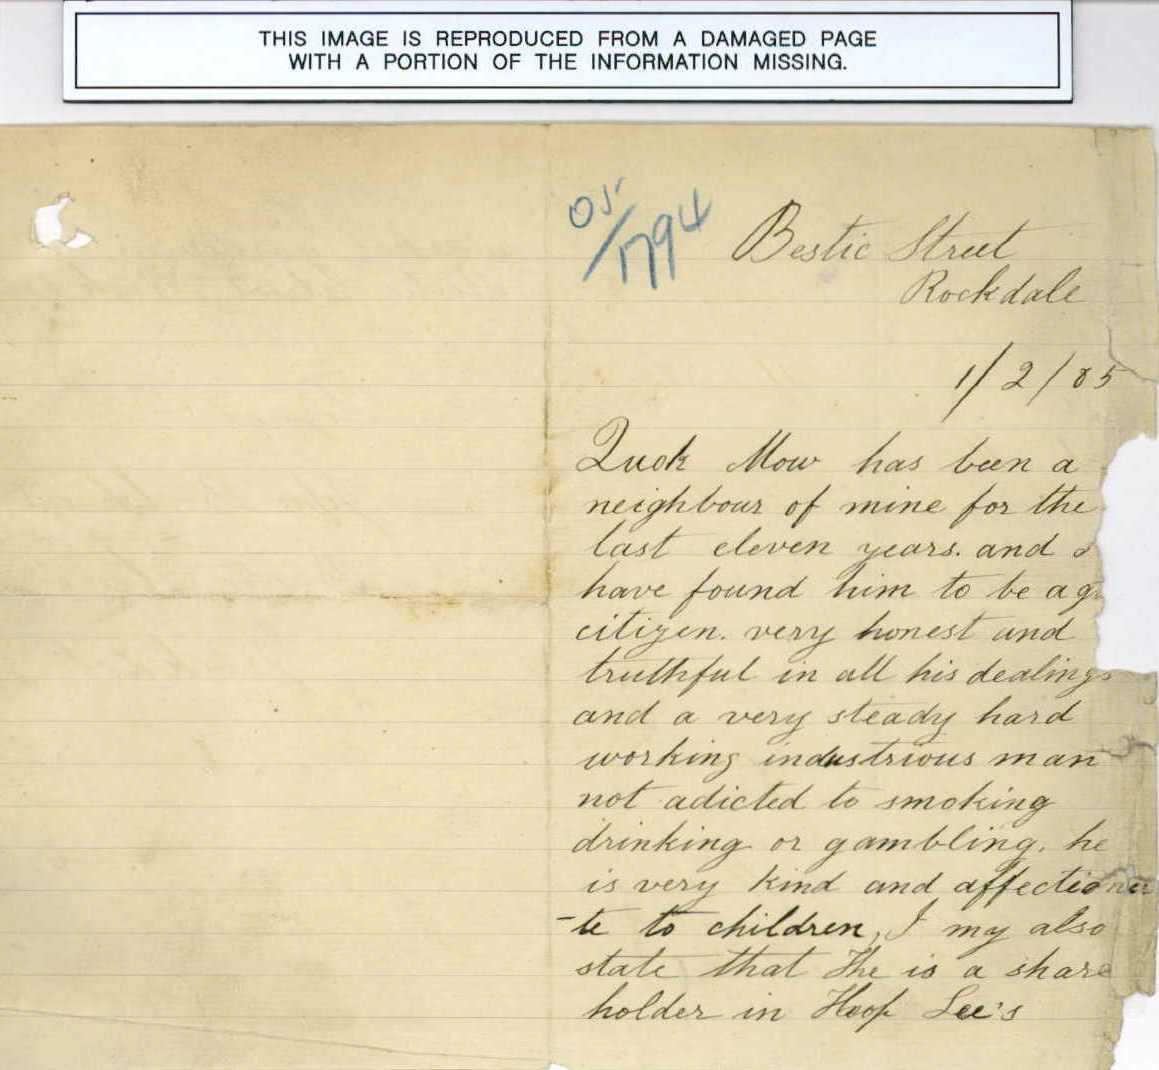 THIS IMAGE IS REPRODUCED FROM A DAMAGED PAGE
WITH A PORTION OF THE INFORMATION MISSING.
05/1794
Bestic Street
Rockdale
1/2/05
Quok Mow has been a
neighbour of mine for the
last eleven years. and I
have found him to be a
citizen. very honest and
truthful in all his dealings
and a very steady hard
working industrious man
not adicted to smoking
drinking or gambling. he
is very kind and affectiona
-te to children, I my also
state that He is a share
holder in Hoop Lee's